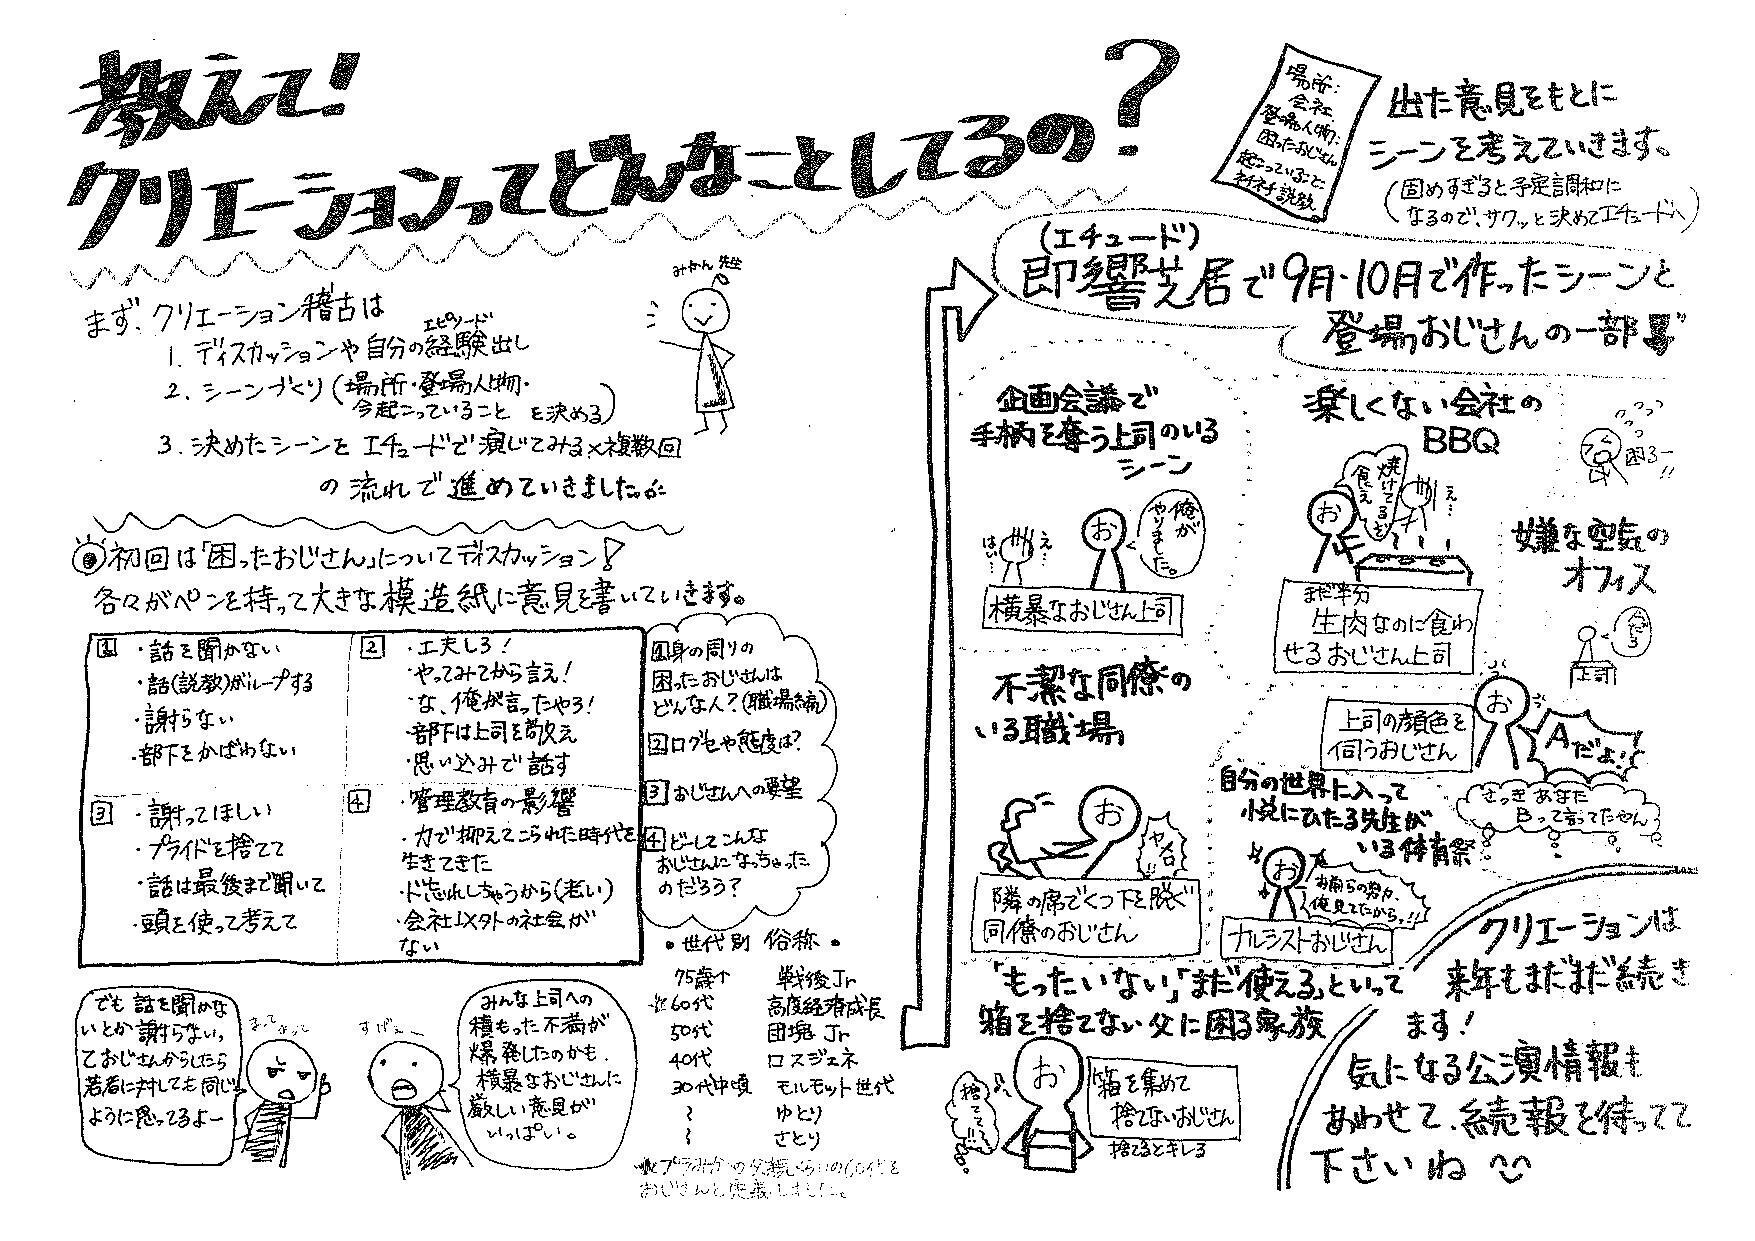 教えて!
クリエーションってどんなことしてるの?
みかん先生
まず、クリエーション稽古は
1. ディスカッションや自分の経験出し
エピソード
2. シーンづくり(場所・登場人物・
今起こっていること を決める)
3. 決めたシーンとエチュードで演じてみる×複数回
の流れで進めていきました。
初回は「困ったおじさん」についてディスカッション!
各々がペンを持って大きな模造紙に意見を書いていきます。
1
・話を聞かない
・話(説教)がループする
・謝らない
・部下をかばわない
2
・工夫しろ!
・やってみてから言え!
・な、俺が言ったやろ!
・部下は上司を敬え
・思い込みで話す
3
・謝ってほしい
・プライドを捨てて
・話は最後まで聞いて
・頭を使って考えて
4
・管理教育の影響
・力で抑えてこられた時代を
生きてきた
・ド忘れしちゃうから(老い)
・会社以外の社会が
ない
1身の周りの
困ったおじさんは
どんな人?(職場編)
2口グセや態度は?
3おじさんへの要望
4どーしてこんな
おじさんになっちゃった
のだろう?
・世代別 俗称・
75歳↑ 戦後Jr
60代 高度経済成長
50代 団塊Jr
40代 ロスジェネ
30代中頃 モルモット世代
〜 ゆとり
〜 さとり
おじさんと定義しました。
でも話を聞かな
いとか謝らないっ
ておじさんからしたら
若者に対しても同じ
ように思ってるよー
すげぇー
みんな上司への
積もった不満が
爆発したのかも。
横暴なおじさんに
厳しい意見が
いっぱい。
場所:
会社
登場人物:
困ったおじさん
起こっていること:
ネチネチ説教。
出た意見をもとに
シーンを考えていきます。
(固めすぎると予定調和に
なるので、サクッと決めてエチュードへ)
(エチュード)
即響芝居で9月・10月で作ったシーンと
登場おじさんの一部
企画会議で
手柄を奪う上司のいる
シーン
はい…
え…
お
俺が
やりました。
横暴なおじさん上司
楽しくない会社の
BBQ
お
焼けてるぞ
食え
え…
まだ半分
生肉なのに食わ
せるおじさん上司
困るー!!
嫌な空気の
オフィス
上司
上司の顔色を
伺うおじさん
お
Aだよ!
さっきあなた
Bって言ってたやん
不潔な同僚の
いる職場
お
ヤメロ!!
隣の席でくつ下を脱ぐ
同僚のおじさん
自分の世界に入って
悦にひたる先生が
いる体育祭
お
お前らの努力、
俺見てたからっ!!
ナルシストおじさん
「もったいない」「まだ使える」といって
箱を捨てない父に困る家族
捨てて!!
お
箱を集めて
捨てないおじさん
捨てるとキレる
クリエーションは
来年もまだまだ続き
ます!
気になる公演情報も
あわせて、続報を待ってて
下さいね